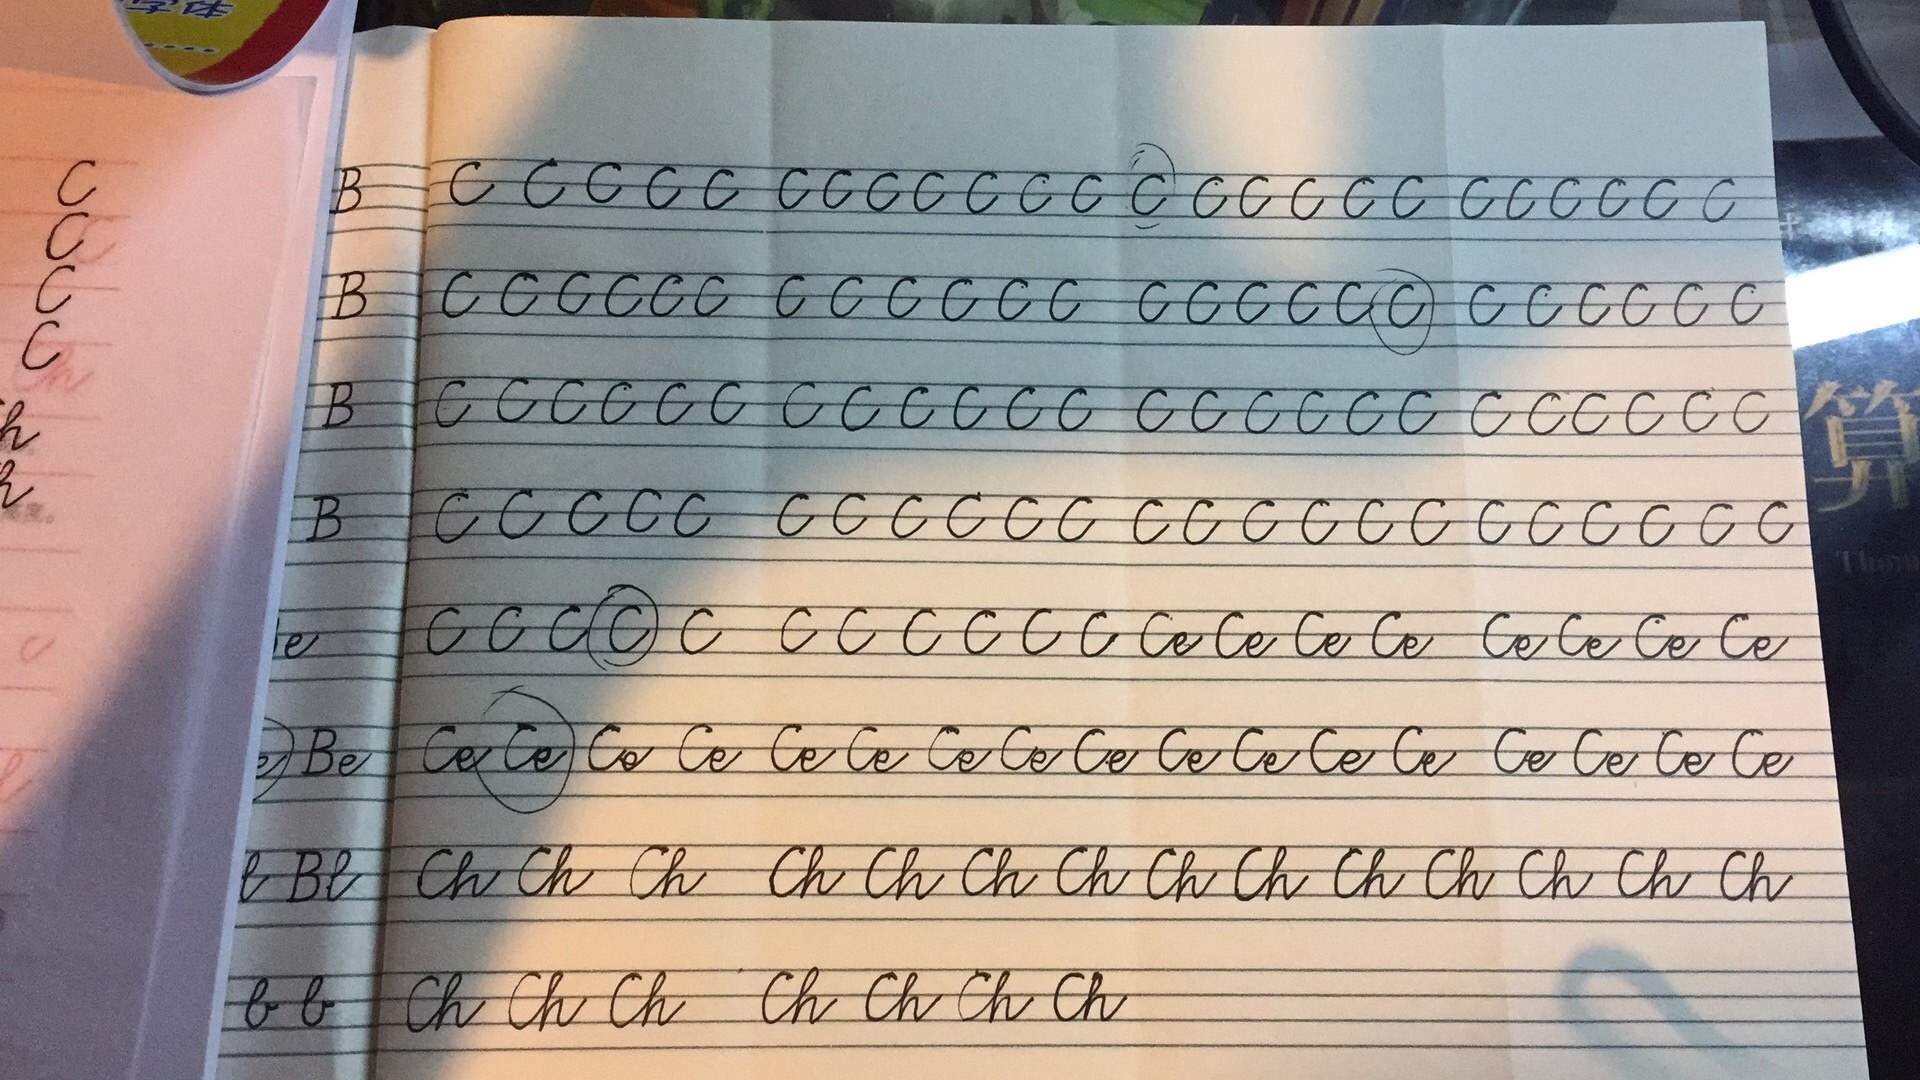 字体
C
C
C
C
h
h
B C C C C C C C C C C C C C C C C C C C C C C C C
B C C C C C C C C C C C C C C C C C C C C C C C C
B C C C C C C C C C C C C C C C C C C C C C C C C
B C C C C C C C C C C C C C C C C C C C C C C C
e C C C C C C C C C C C Ce Ce Ce Ce Ce Ce Ce Ce
e Be Ce Ce Ce Ce Ce Ce Ce Ce Ce Ce Ce Ce Ce Ce Ce Ce Ce
l Bl Ch Ch Ch Ch Ch Ch Ch Ch Ch Ch Ch Ch Ch Ch
b b Ch Ch Ch Ch Ch Ch Ch
算